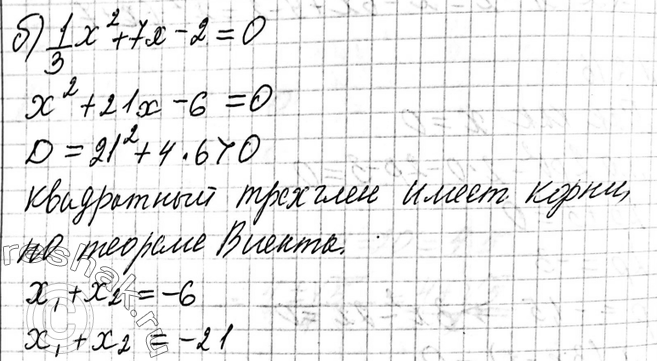 б) 1/3 x² + 7x - 2 = 0
x² + 21x - 6 = 0
D = 21² + 4 · 6 > 0
квадратный трехчлен имеет корни,
по теореме Виета.
x₁ + x₂ = -6
x₁ + x₂ = -21
reshak.ru